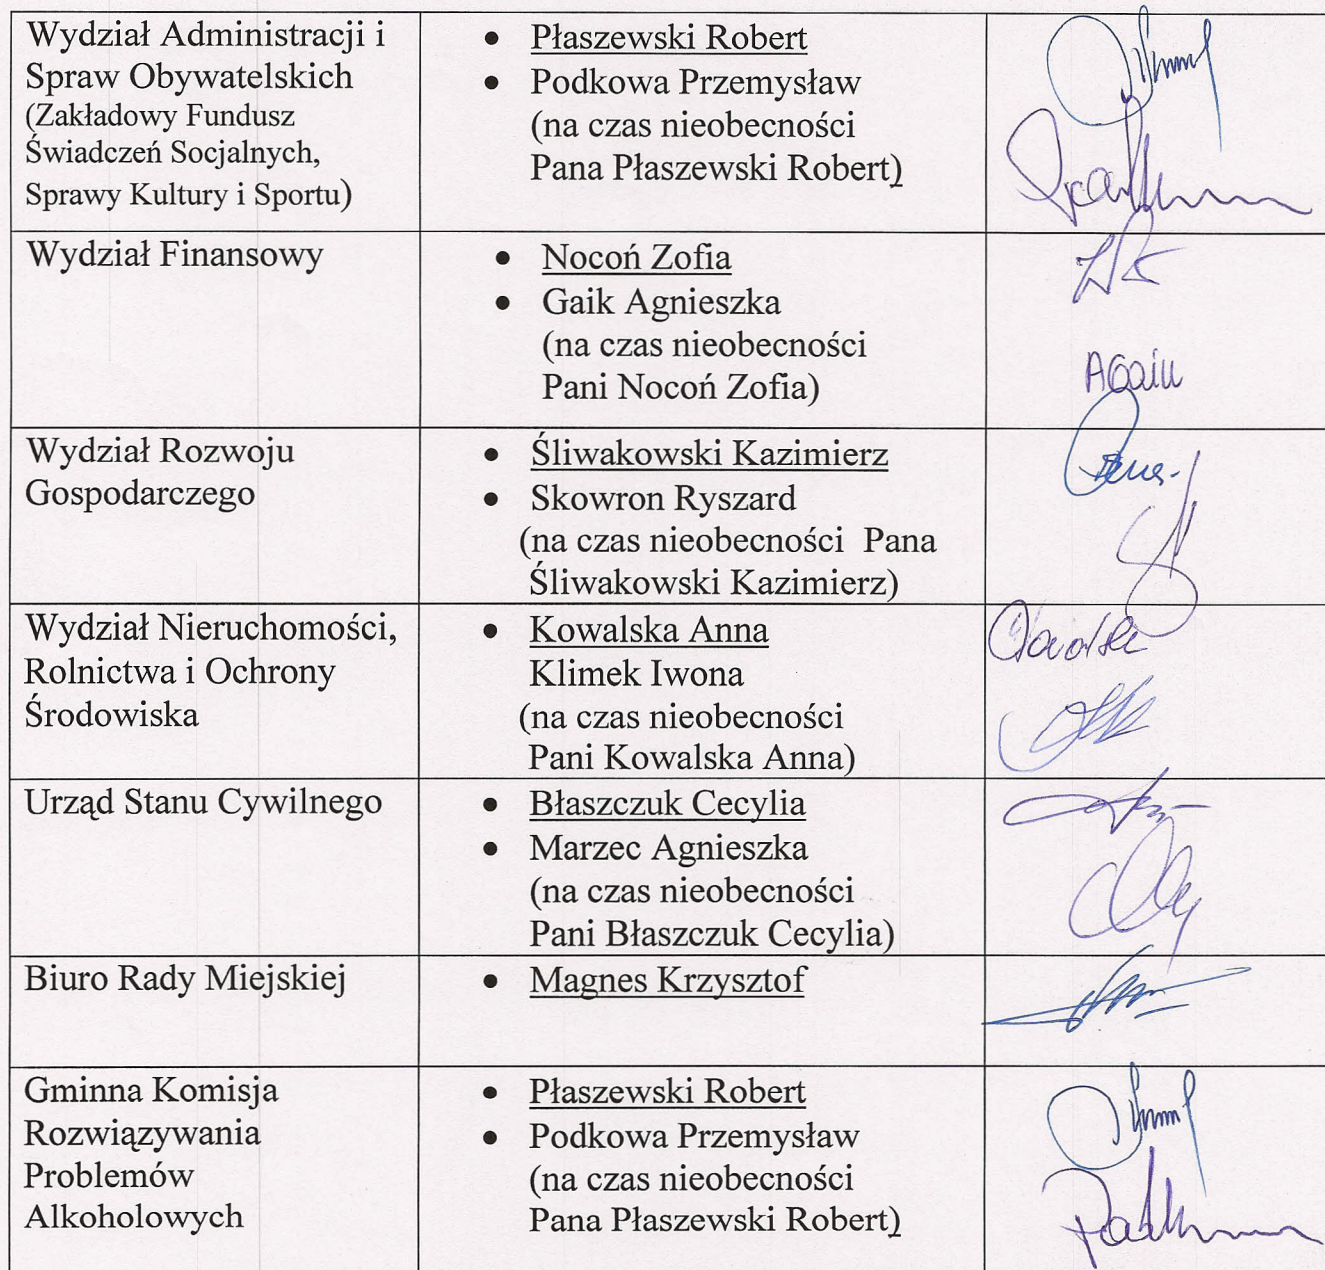 Wydział Administracji i
Spraw Obywatelskich
(Zakładowy Fundusz
Świadczeń Socjalnych,
Sprawy Kultury i Sportu)
• Płaszewski Robert
• Podkowa Przemysław
(na czas nieobecności
Pana Płaszewski Robert)
Wydział Finansowy
• Nocoń Zofia
• Gaik Agnieszka
(na czas nieobecności
Pani Nocoń Zofia)
Wydział Rozwoju
Gospodarczego
• Śliwakowski Kazimierz
• Skowron Ryszard
(na czas nieobecności Pana
Śliwakowski Kazimierz)
Wydział Nieruchomości,
Rolnictwa i Ochrony
Środowiska
• Kowalska Anna
Klimek Iwona
(na czas nieobecności
Pani Kowalska Anna)
Urząd Stanu Cywilnego
• Błaszczuk Cecylia
• Marzec Agnieszka
(na czas nieobecności
Pani Błaszczuk Cecylia)
Biuro Rady Miejskiej
• Magnes Krzysztof
Gminna Komisja
Rozwiązywania
Problemów
Alkoholowych
• Płaszewski Robert
• Podkowa Przemysław
(na czas nieobecności
Pana Płaszewski Robert)